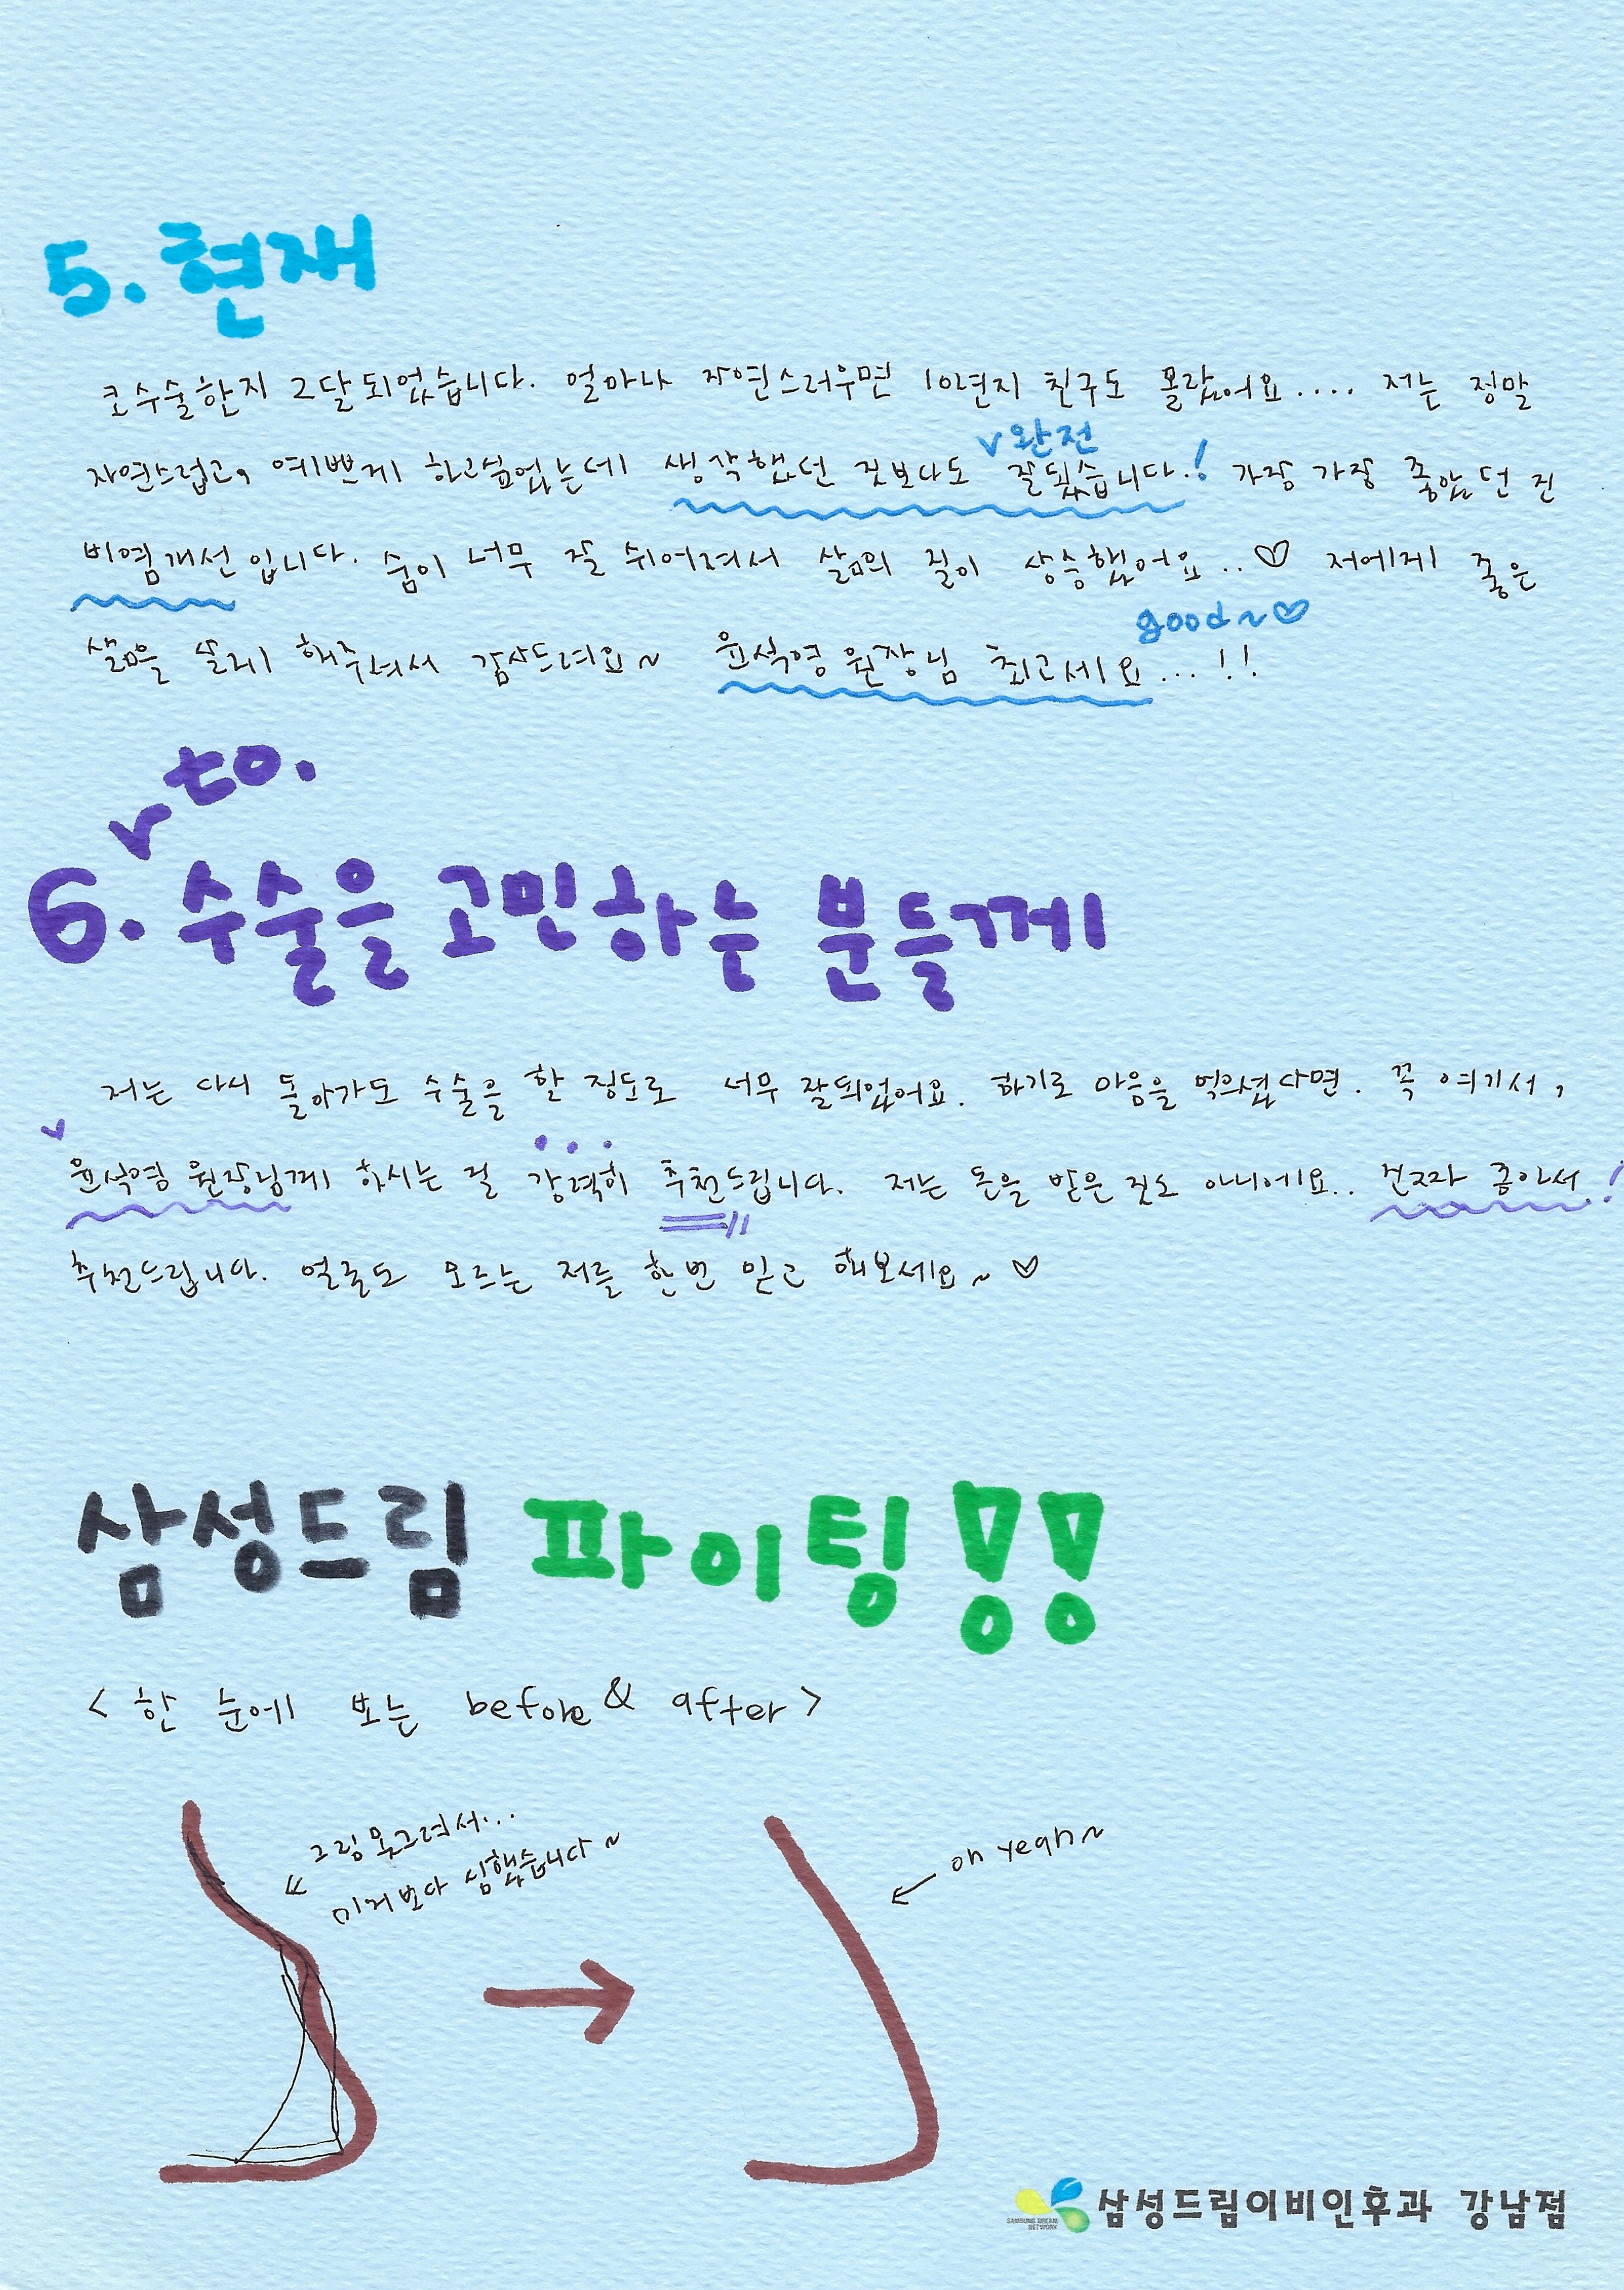 5. 현재
코수술한지 2달되었습니다. 얼마나 자연스러우면 10년지 친구도 몰랐어요.... 저는 정말
완전
자연스럽고, 예쁘게 하고싶었는데 생각했던 것보다도 ∨ 잘됐습니다.! 가장 가장 좋았던 건
비염개선입니다. 숨이 너무 잘 쉬어려서 삶의 질이 상승했어요..♡ 저에게 좋은
good~♡
삶을 살게 해주셔서 감사드려요~ 윤석영 원장님 최고세요...!!
∨ to.
6. 수술을 고민하는 분들께
저는 다시 돌아가도 수술을 할 정도로 너무 잘되었어요. 하기로 마음을 먹으셨다면. 꼭 여기서,
∨ 윤석영 원장님께 하시는 걸 강력히 추천드립니다. 저는 돈을 받은 것도 아니에요.. 진짜 좋아서!
추천드립니다. 얼굴도 모르는 저를 한번 믿고 해보세요~♡
삼성드림 파이팅!!
<한 눈에 보는 before & after>
그림 못그려서...
이거보다 심했습니다~
oh yeah~
삼성드림이비인후과 강남점
SAMSUNG DREAM
NETWORK